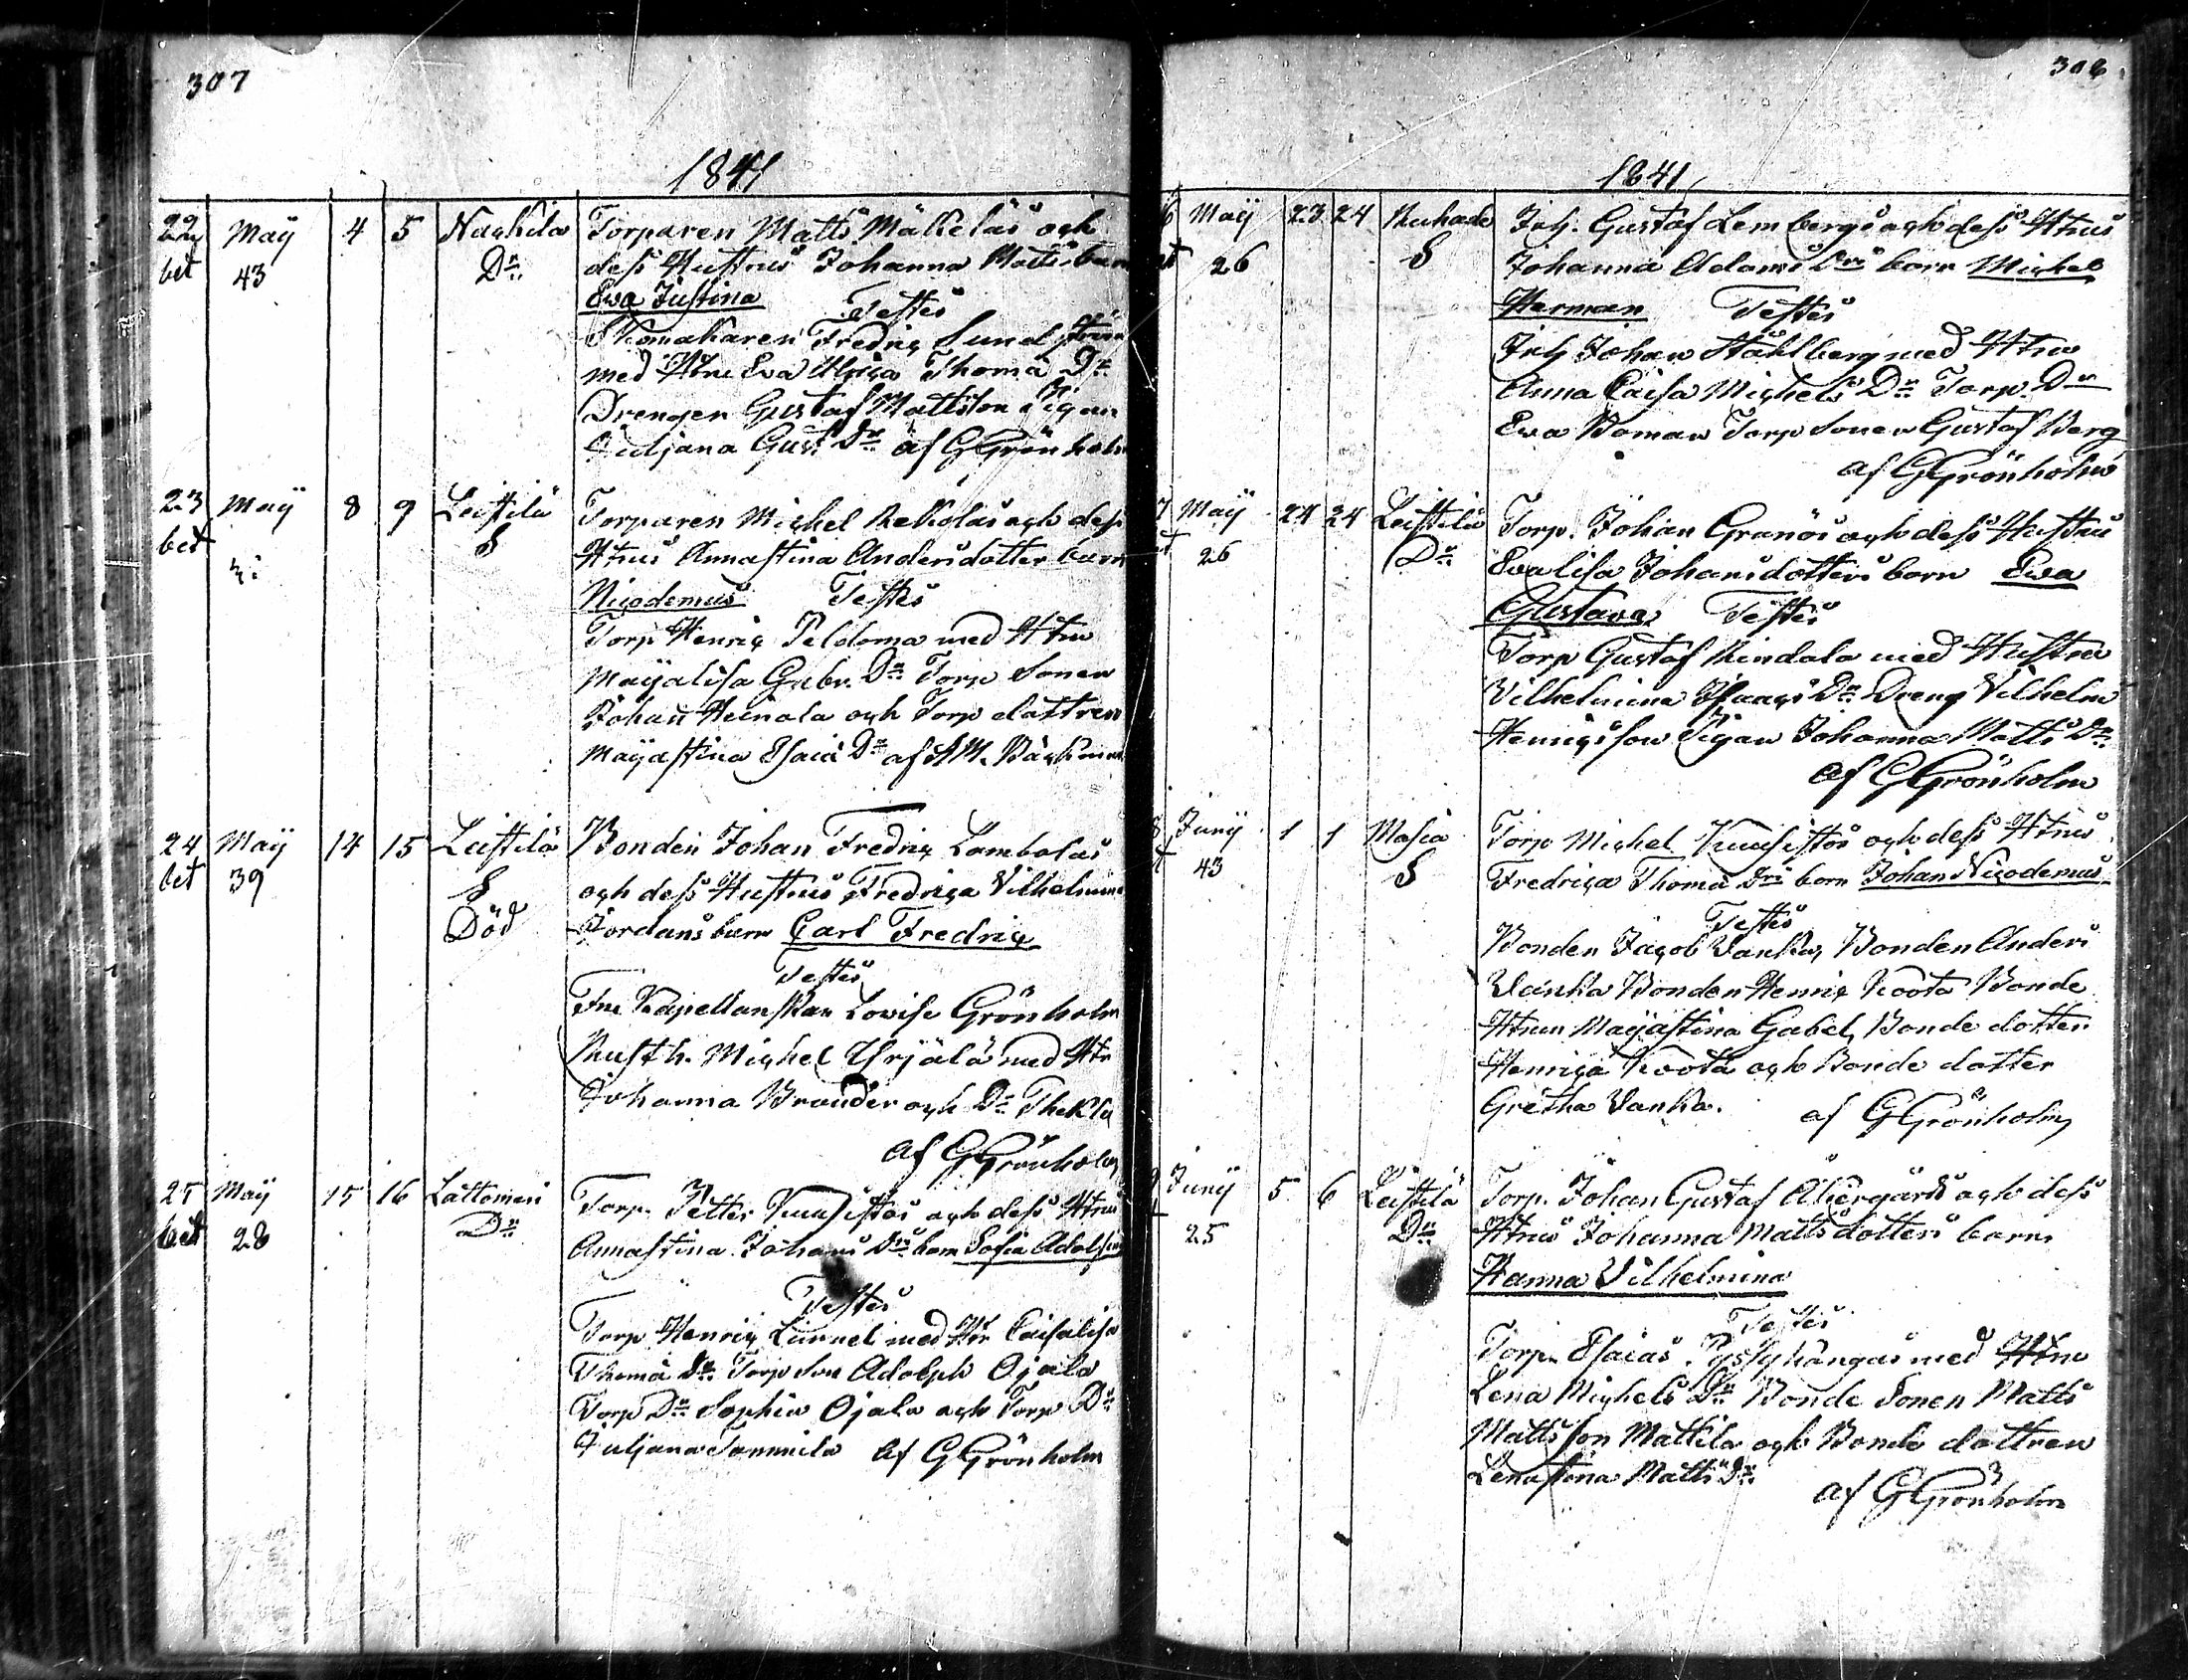 307
1841
22 May 4 5 Naskila Torparen Matts Mäkelas och
bet 43 Dr. dess Hustrus Johanna Matts barn
Ewa Justina Testes
Skomakaren Fredric Sundström
med Htru Eva Ulrica Thomä Dr.
Drengen Gustaf Mattsson Pigan
Juljana Gust. Dr. af G Grönholm
23 May 8 9 Leistilä Torparen Michel Rekolas och dess
bet S Htrus Annastina Andersdotter barn
Nicodemus Testes
Torp Henric Peldoma med Htru
Mayalisa Gabr. Dr. Torp Sonen
Johan Heinola och Torp dottren
Mayastina Esaiä Dr. af A M.
24 May 14 15 Leistilä Bonden Johan Fredric Lambolas
bet 39 S och dess Hustrus Fredrica Vilhelmina
Död Jordans barn Carl Fredric
Testes
Fru Kapellanskan Lovise Grönholm
Rusth. Michel Yrjälä med Htr
Johanna Brander och Dr. Thekla
af G Grönholm
25 May 15 16 Lattomeri Torp. Petter Kuusistos och dess Htrus
bet 28 Dr. Annastina Johans Drs barn Sofia Adolfina
Testes
Torp Henric Linnel med Htr Caisalisa
Thomä Dr. Torp Son Adolph Ojala
Torp Dr. Sophia Ojala och Torp Dr.
Juljana Tommila af G Grönholm
308
1841
6 May 23 24 Ruhade Inh. Gustaf Lembergs och dess Htrus
26 S Johanna Adams Drs barn Michel
Herman Testes
Inh Johan Ståhlberg med Htru
Anna Caisa Michels Dr. Torp. Dr
Eva Boman Torp Sonen Gustaf Berg
af G Grönholm
7 May 24 24 Leistilä Torp. Johan Granös och dess Hustrus
26 Dr. Evalisa Johansdotters barn Ewa
Gustava Testes
Torp Gustaf Rindala med Hustru
Vilhelmina Isaacs Dr. Dreng Vilhelm
Henricsson Pigan Johanna Matts Dr.
af G Grönholm
8 Juny 1 1 Masia Torp Michel Kuusistos och dess Htrus
43 S Fredrica Thomä Drs barn Johan Nicodemus
Testes
Bonden Jacob Vanha, Bonden Anders
Vanha Bonden Henric Koota Bonde
Htrun Mayastina Gabel, Bonde dotter
Henrica Koota och Bonde dotter
Gretha Vanha. af G Grönholm
9 Juny 5 6 Leistilä Torp. Johan Gustaf Åkergårds och dess
25 Dr. Htrus Johanna Mattsdotters barn
Hanna Vilhelmina
Testes
Torp. Esaias Pyssyhangas med Htru
Lena Michels Dr Bonde Sonen Matts
Mattsson Mattila och Bonde dottren
Lenastina Matts Dr.
af G Grönholm